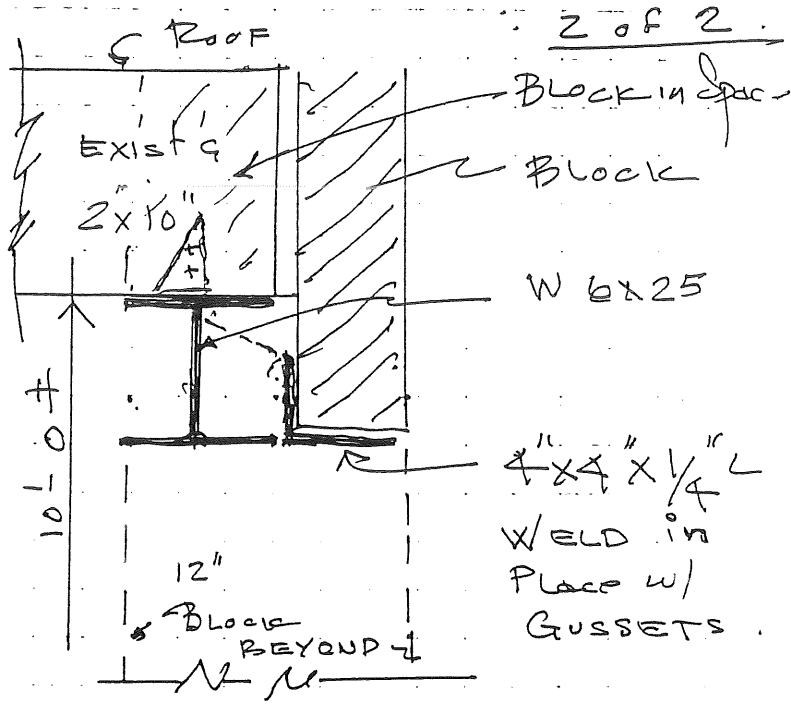 2 of 2.
ROOF
BLOCK in Spac
EXIST'G
2x10"
BLOCK
W 6x25
10'-0 ±
4"x4"x1/4" L
WELD in
Place w/
GUSSETS.
12"
BLOCK
BEYOND